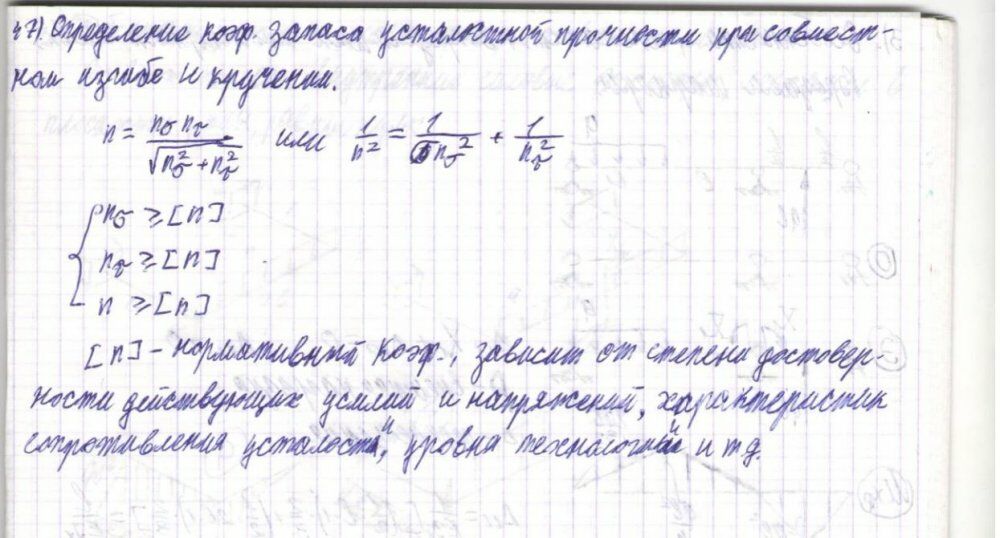 47) Определение коэф. запаса усталостной прочности при совмест-
ном изгибе и кручении.
n = nσ nτ / √(nσ² + nτ²) или 1/n² = 1/nσ² + 1/nτ²
nσ ≥ [n]
nτ ≥ [n]
n ≥ [n]
[n] - нормативный коэф., зависит от степени достовер-
ности действующих усилий и напряжений, характеристик
сопротивления усталости, уровня технологий и т.д.